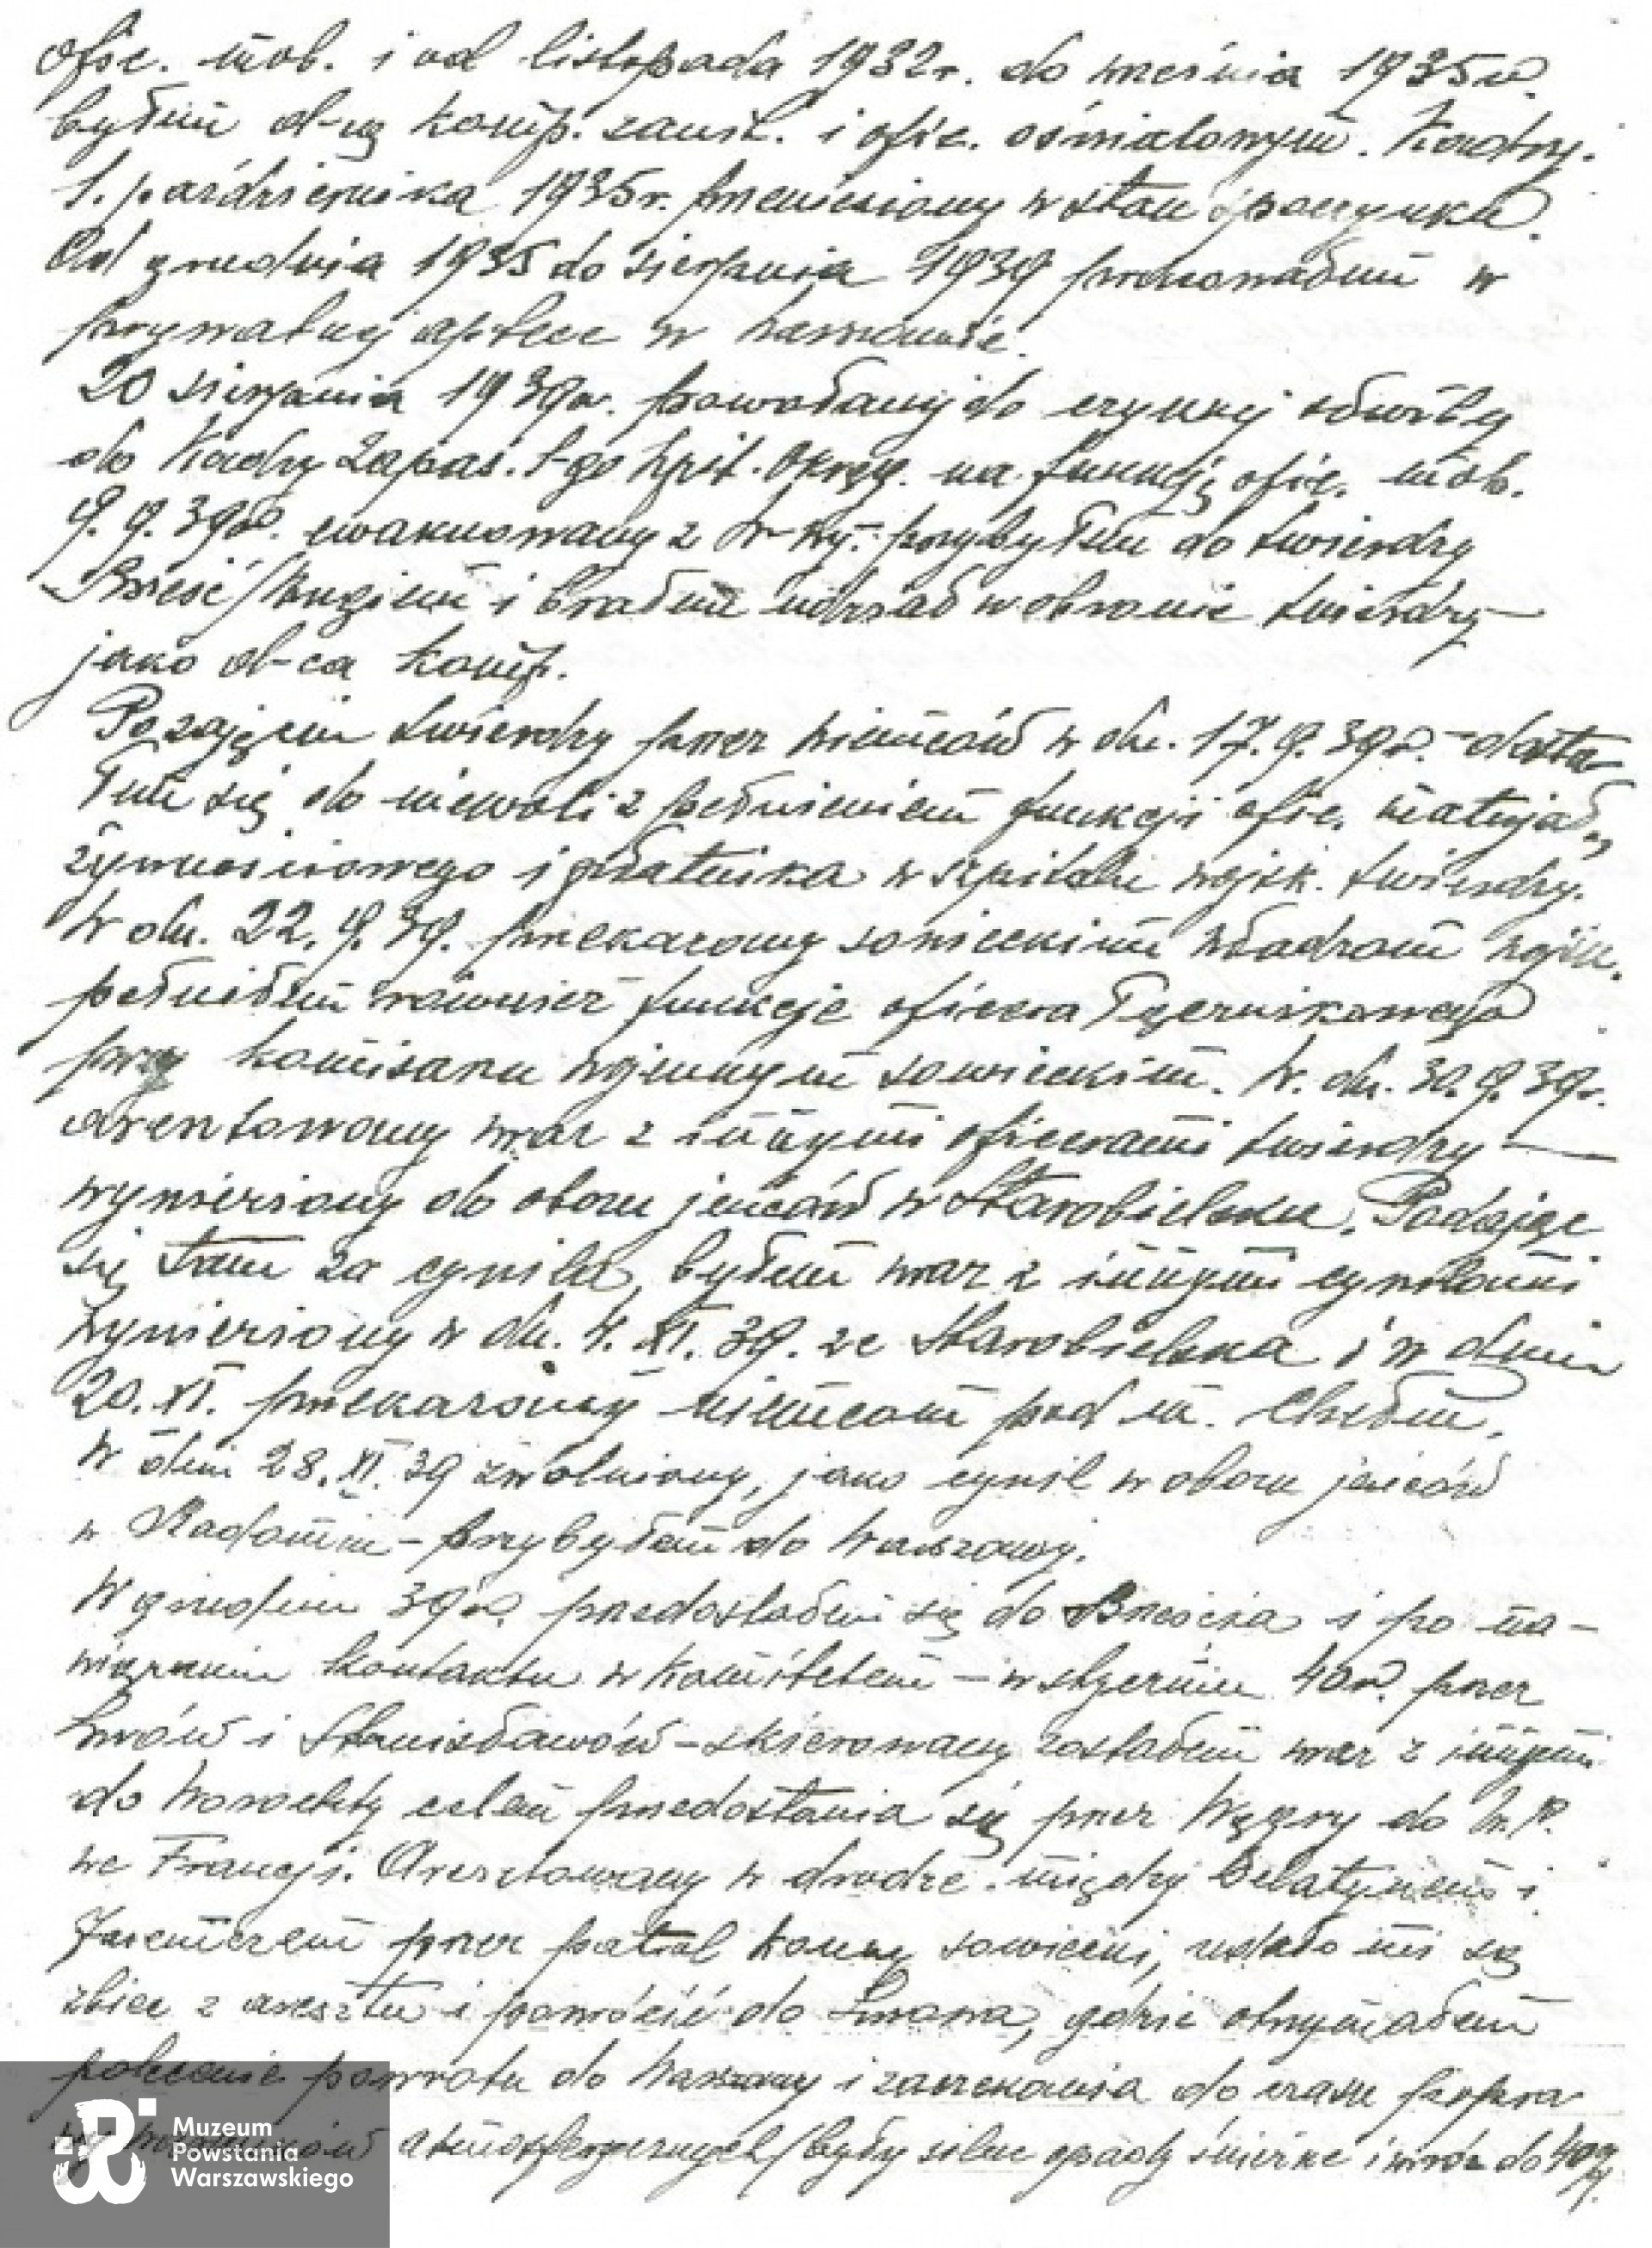 ofic. mob. i od listopada 1932r. do września 1935r.
byłem d-cą komp. sanit. i ofic. oświatowym. Kadry.
1. października 1935r. przeniesiony w stan spoczynku.
Od grudnia 1935 do sierpnia 1939 pracowałem w
prywatnej aptece w Warszawie.
20 sierpnia 1939r. powołany do czynnej służby
do Kadry Zapas. 1-go Szpit. Okręg. na funkcję ofic. mob.
9.9.39r. ewakuowany z W-wy. przybyłem do twierdzy
Brześć/Bugiem i brałem udział w obronie twierdzy
jako d-ca komp.
Po zajęciu twierdzy przez niemców w dn. 17.9.39r. - dosta-
łem się do niewoli z pełnieniem funkcji ofic. materiał.,
żywnościowego i płatnika w szpitalu wojsk. twierdzy.
W dn. 22.9.39. przekazany sowieckim władzom wojsk.
pełniłem również funkcje oficera łącznikowego
przy komisarzu wojennym sowieckim. W. dn. 30.9.39r.
aresztowany wraz z innymi oficerami twierdzy
wywieziony do obozu jeńców w Starobielsku. Podając
się tam za cywila, byłem wraz z innymi cywilami
wywieziony w dn. 4.XI.39. ze Starobielska i w dniu
20.XI. przekazany niemcom pod m. Chełm.
W dniu 28.XI.39 zwolniony, jako cywil w obozu jeńców
w Radomiu - przybyłem do Warszawy.
W grudniu 39r. przedostałem się do Brześcia i po na-
wiązaniu kontaktu w Komitetem - w styczniu 40r. przez
Lwów i Stanisławów - skierowany zostałem wraz z innymi
do Worochty celem przedostania się przez Węgry do W.P.
we Francji. Aresztowany w drodze między Delatynem i
Jaremczem przez patrol konny sowiecki, udało mi się
zbiec z aresztu i powrócić do Lwowa, gdzie otrzymałem
polecenie powrotu do Warszawy i zaczekania do czasu popra
wy warunków atmosferycznych/były silne opady śnieżne i mróz do 40°/.
Muzeum
Powstania
Warszawskiego